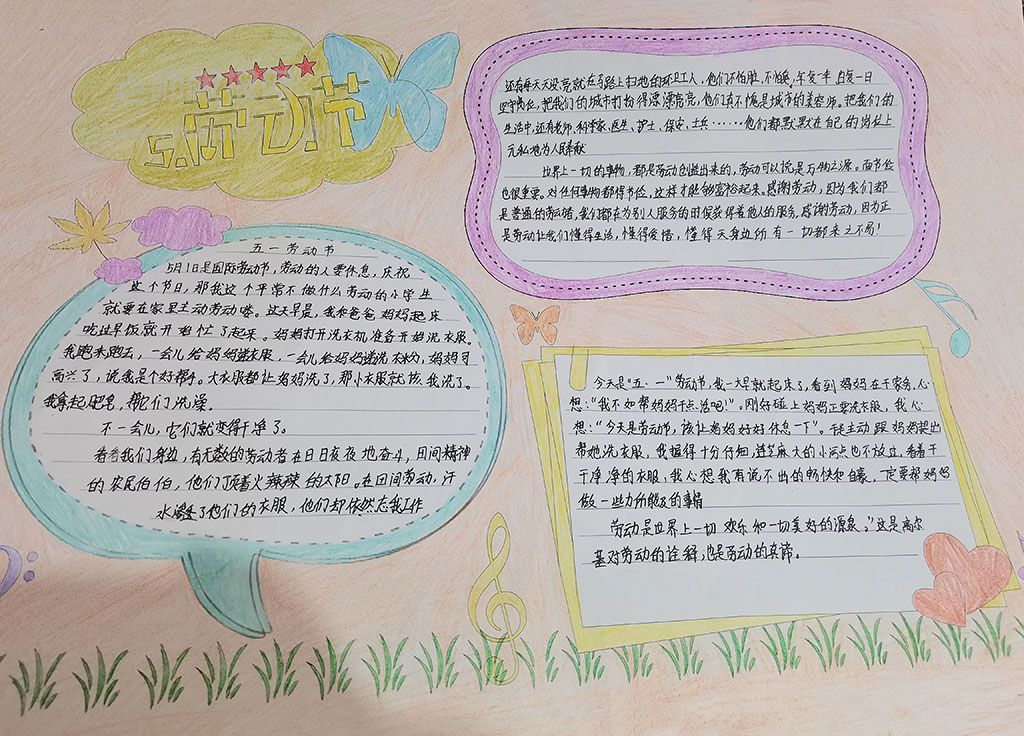 5.1劳动节
五一劳动节
5月1日是国际劳动节,劳动的人要休息,庆祝
这个节日,那我这个平常不做什么劳动的小学生
就要在家里主动劳动喽。这天早晨,我和爸爸妈妈起床
吃过早饭就开始忙了起来。妈妈打开洗衣机准备开始洗衣服。
我跑来跑去,一会儿给妈妈递衣服,一会儿给妈妈递洗衣粉,妈妈可
高兴了,说我是个好帮手。大衣服都让妈妈洗了,那小衣服就该我洗了。
我拿起肥皂,帮它们洗澡。
不一会儿,它们就变得干净了。
看看我们身边,有无数的劳动者在日日夜夜地奋斗,田间精神
的农民伯伯,他们顶着火辣辣的太阳。在田间劳动,汗
水湿透了他们的衣服,他们却依然忘我工作
还有每天天没亮就在马路上扫地的环卫工人,他们不怕脏,不怕累,年复一年 日复一日
坚守岗位,把我们的城市打扮得漂漂亮亮,他们真不愧是城市的美容师。把我们的
生活中,还有老师,科学家,医生,护士,保安,士兵……他们都默默在自己的岗位上
无私地为人民奉献
世界上一切的事物,都是劳动创造出来的,劳动可以说是万物之源。而节俭
也很重要。对任何事物都得节俭,这样才能够富裕起来。感谢劳动,因为我们都
是普通的劳动者,我们都在为别人服务的时候获得着他人的服务,感谢劳动,因为正
是劳动让我们懂得生活,懂得爱惜,懂得天身边所有一切都来之不易!
今天是“五·一”劳动节,我一大早就起床了,看到妈妈在干家务,心
想:“我不如帮妈妈干点活吧!”。刚好碰上妈妈正要洗衣服,我心
想:“今天是劳动节,该让妈妈好好休息一下”。于是主动跟妈妈提出
帮她洗衣服,我搓得十分仔细,连芝麻大的小污点也不放过,看着干
干净净的衣服,我心想我有说不出的畅快和自豪,一定要帮妈妈
做一些力所能及的事情
劳动是世界上一切欢乐和一切美好的源泉。”这是高尔
基对劳动的诠释,也是劳动的真谛。